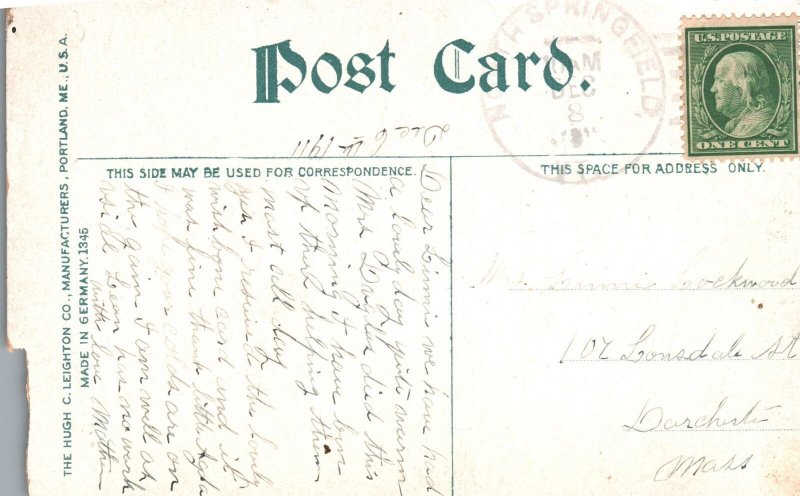 Post Card.
NORTH SPRINGFIELD,
AM
DEC
8
U.S. POSTAGE
ONE CENT
THE HUGH C. LEIGHTON CO., MANUFACTURERS, PORTLAND, ME., U.S.A.
MADE IN GERMANY. 1345
THIS SIDE MAY BE USED FOR CORRESPONDENCE.
THIS SPACE FOR ADDRESS ONLY.
Dec 6th 1911
Dear Linnie we have had
a lovely day quite warm
Mrs Douglas died this
morning I have been
up there helping them
most all day
I received the lovely
wishbone card and it
was fine thank little
I hope your colds are on
the gain I am well as
Leon has no work
with love Mother
Linnie Lockwood
102 Lonsdale St
Dorchester
Mass